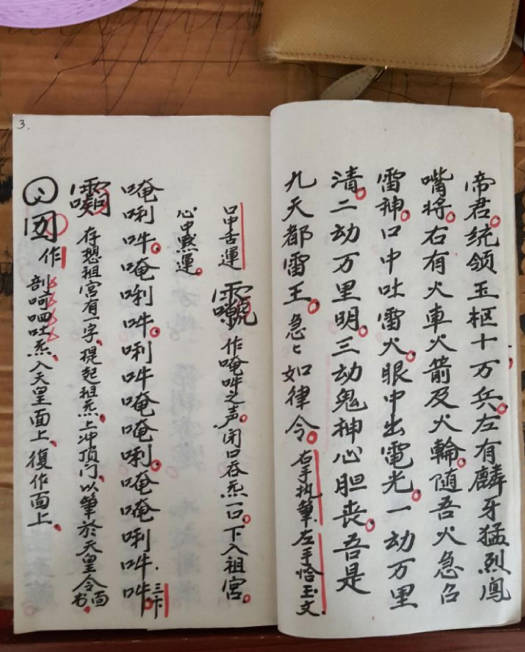 帝君。统领玉枢十万兵。左有麟牙猛烈鳳
嘴将。右有火車火箭及火輪。随吾火急召
雷神。口中吐雷火。眼中出電光。一动万里
清。二动万里明。三动鬼神心胆丧。吾是
九天都雷王。急ミ如律令。右手执筆.左手恰玉文.
口中舌運
心中黙運。
作唵吽之声.闭口吞炁一口.下入祖宫。
唵唎吽。唵唎吽。唎吽唵唵唎。唵唵唎吽吽 三下
存想祖宫有一字.提起祖炁上冲顶门.以筆於天皇令面书.
作 剖呵呬吐炁入天皇面上.復作面上.
3.